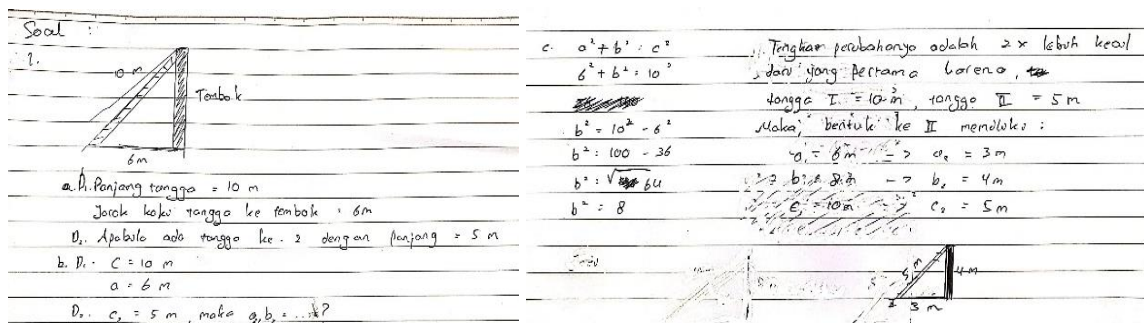 Soal :
1.
10 m
Tembok
6 m
a. D1. Panjang tangga = 10 m
Jarak kaki tangga ke tembok = 6m
D2. Apabila ada tangga ke-2 dengan panjang = 5 m
b. D1. C = 10 m
a = 6 m
D2. c2 = 5 m, maka a2 b2 = ....?
c. a² + b² = c²
6² + b² = 10²
b² = 10² - 6²
b² = 100 - 36
b² = √64
b² = 8
perubahanya adalah 2x lebih kecil
dari yang Pertama karena,
tangga I = 10 m, tangga II = 5 m
Maka, bentuk ke II memiliki :
a1 = 6m -> a2 = 3m
b1 = 8m -> b2 = 4m
c1 = 10m -> c2 = 5m
5 m
4 m
3 m